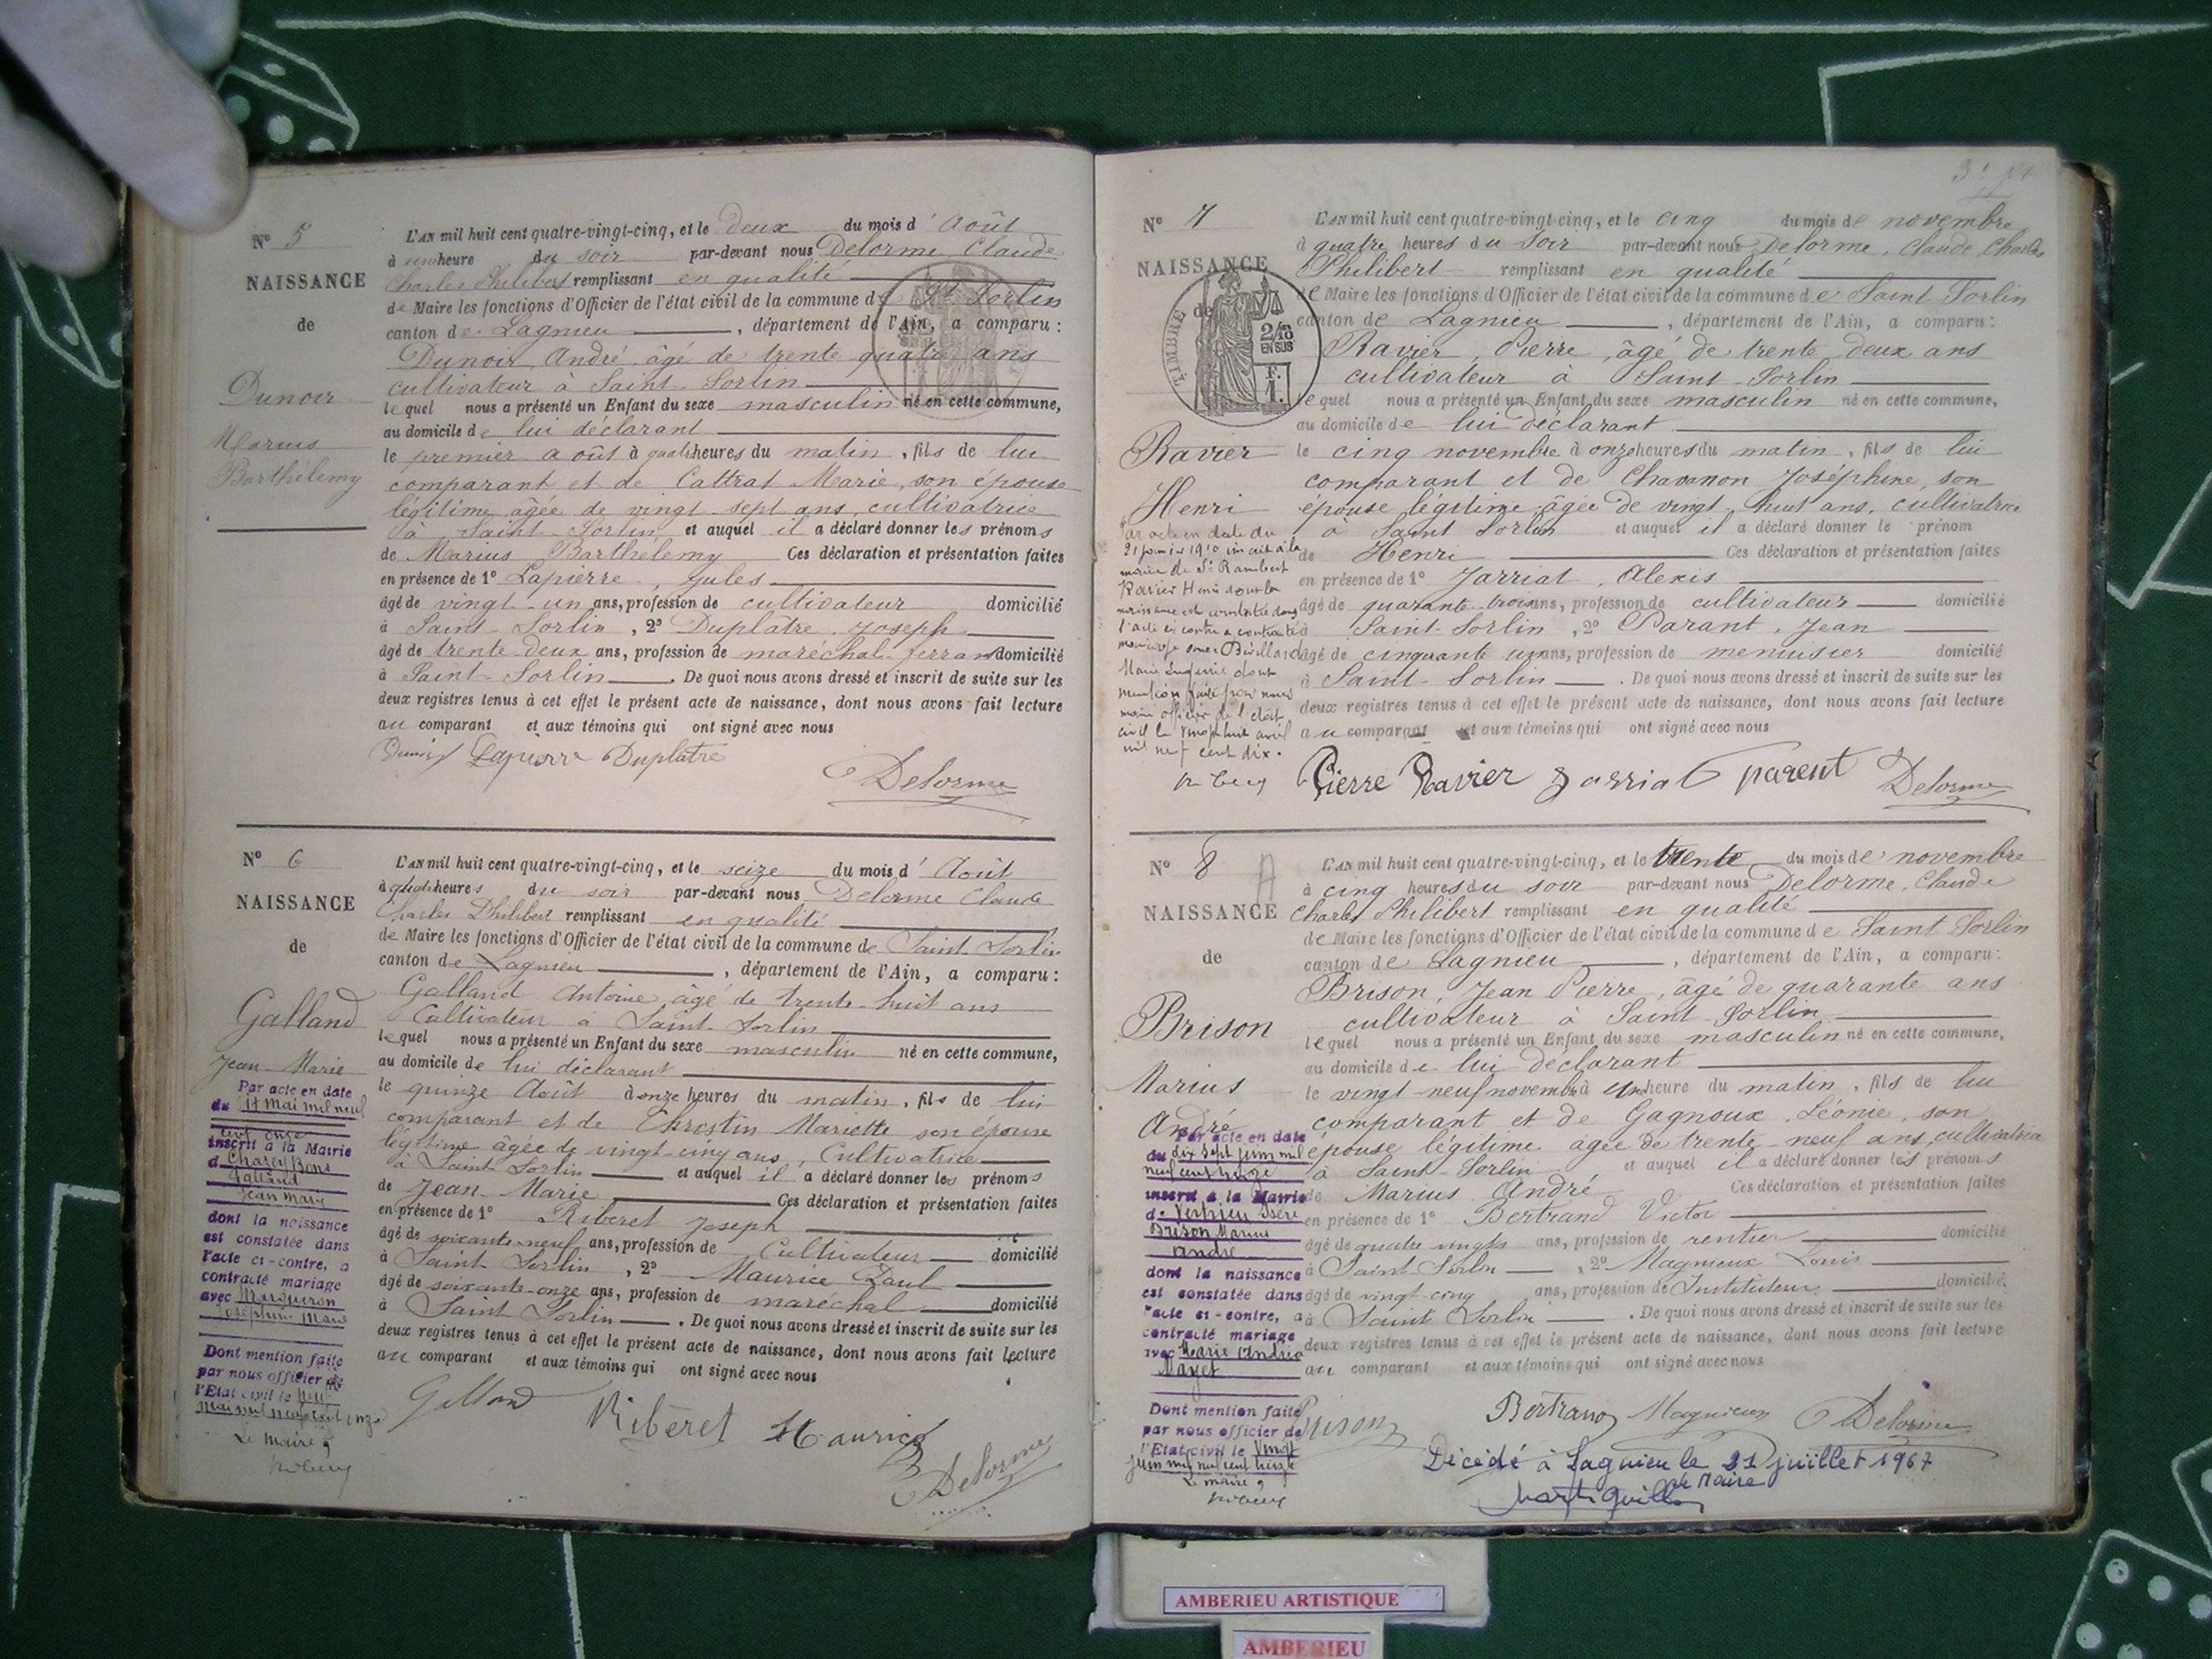 N° 5
NAISSANCE
de
Dunoir
Marius
Barthélemy
L'AN mil huit cent quatre-vingt-cinq, et le deux du mois d'Août
à une heure du soir par-devant nous Delorme Claude
Charles Philibert remplissant en qualité
de Maire les fonctions d'Officier de l'état civil de la commune de St Sorlin
canton de Lagnieu, département de l'Ain, a comparu :
Dunoir André âgé de trente quatre ans
cultivateur à Saint-Sorlin
lequel nous a présenté un Enfant du sexe masculin né en cette commune,
au domicile de lui déclarant
le premier août à quatre heures du matin, fils de lui
comparant et de Cattrat Marie, son épouse
légitime âgée de vingt sept ans, cultivatrice
à Saint-Sorlin, et auquel il a déclaré donner les prénoms
de Marius Barthélemy Ces déclaration et présentation faites
en présence de 1° Lapierre, Jules
âgé de vingt-un ans, profession de cultivateur domicilié
à Saint-Sorlin, 2° Duplatre Joseph
âgé de trente-deux ans, profession de maréchal ferrant domicilié
à Saint-Sorlin. De quoi nous avons dressé et inscrit de suite sur les
deux registres tenus à cet effet le présent acte de naissance, dont nous avons fait lecture
au comparant et aux témoins qui ont signé avec nous
Lapierre Duplatre
Delorme
N° 6
NAISSANCE
de
Galland
Jean-Marie
Par acte en date
du 17 Mai mil neuf
cent onze
inscrit à la Mairie
d
Galland
Jean Marie
dont la naissance
est constatée dans
l'acte ci-contre, a
contracté mariage
avec
Joséphine Marie
Dont mention faite
par nous officier de
l'Etat civil le
Le Maire,
L'AN mil huit cent quatre-vingt-cinq, et le seize du mois d'Août
à quatre heures du soir par-devant nous Delorme Claude
Charles Philibert remplissant en qualité
de Maire les fonctions d'Officier de l'état civil de la commune de Saint Sorlin
canton de Lagnieu, département de l'Ain, a comparu :
Galland Antoine, âgé de trente-huit ans
Cultivateur à Saint-Sorlin
lequel nous a présenté un Enfant du sexe masculin né en cette commune,
au domicile de lui déclarant
le quinze Août à onze heures du matin, fils de lui
comparant et de Chrestin Mariette son épouse
légitime âgée de vingt-cinq ans, Cultivatrice
à Saint Sorlin et auquel il a déclaré donner les prénoms
de Jean-Marie Ces déclaration et présentation faites
en présence de 1° Riberet Joseph
âgé de soixante-neuf ans, profession de Cultivateur domicilié
à Saint Sorlin, 2° Maurice Paul
âgé de soixante-onze ans, profession de maréchal domicilié
à Saint Sorlin. De quoi nous avons dressé et inscrit de suite sur les
deux registres tenus à cet effet le présent acte de naissance, dont nous avons fait lecture
au comparant et aux témoins qui ont signé avec nous
Galland Ribéret Maurice
Delorme
N° 7
NAISSANCE
de
TIMBRE
2/10
EN SUS
F.
1.
Ravier
Henri
Par acte en date du
21 janvier 1910 inscrit à la
mairie de St Rambert
Ravier Henri dont la
naissance est constatée dans
l'acte ci contre a contracté
mariage avec
dont
mention faite par nous
maire officier de l'état
civil le vingt huit avril
mil neuf cent dix.
L'AN mil huit cent quatre-vingt-cinq, et le cinq du mois de novembre
à quatre heures du soir par-devant nous Delorme, Claude Charles
Philibert remplissant en qualité
de Maire les fonctions d'Officier de l'état civil de la commune de Saint Sorlin
canton de Lagnieu, département de l'Ain, a comparu :
Ravier, Pierre, âgé de trente deux ans
cultivateur à Saint-Sorlin
lequel nous a présenté un Enfant du sexe masculin né en cette commune,
au domicile de lui déclarant
le cinq novembre à onze heures du matin, fils de lui
comparant et de Chavanon Joséphine, son
épouse légitime âgée de vingt huit ans, cultivatrice
à Saint Sorlin et auquel il a déclaré donner le prénom
de Henri Ces déclaration et présentation faites
en présence de 1° Jarriat, Alexis
âgé de quarante trois ans, profession de cultivateur domicilié
à Saint-Sorlin, 2° Parant, Jean
âgé de cinquante un ans, profession de menuisier domicilié
à Saint-Sorlin. De quoi nous avons dressé et inscrit de suite sur les
deux registres tenus à cet effet le présent acte de naissance, dont nous avons fait lecture
au comparant et aux témoins qui ont signé avec nous
Pierre Ravier Jarriat parent Delorme
N° 8
NAISSANCE
de
Brison
Marius
André
Par acte en date
du dix sept juin mil
neuf cent treize
inscrit à la Mairie
de Vertrieu Isère
Brison Marius
André
dont la naissance
est constatée dans
l'acte ci-contre, a
contracté mariage
avec Marie Andréa
Mayet
Dont mention faite
par nous officier de
l'Etat civil le vingt
juin mil neuf cent treize
Le Maire,
L'AN mil huit cent quatre-vingt-cinq, et le trente du mois de novembre
à cinq heures du soir par-devant nous Delorme, Claude
Charles Philibert remplissant en qualité
de Maire les fonctions d'Officier de l'état civil de la commune de Saint Sorlin
canton de Lagnieu, département de l'Ain, a comparu :
Brison, Jean Pierre, âgé de quarante ans
cultivateur à Saint-Sorlin
lequel nous a présenté un Enfant du sexe masculin né en cette commune,
au domicile de lui déclarant
le vingt neuf novembre à une heure du matin, fils de lui
comparant et de Gagnoux, Léonie, son
épouse légitime âgée de trente-neuf ans, cultivatrice
à Saint-Sorlin et auquel il a déclaré donner les prénoms
de Marius André Ces déclaration et présentation faites
en présence de 1° Bertrand Victor
âgé de quatre vingts ans, profession de rentier domicilié
à Saint Sorlin, 2° Magnieux Louis
âgé de vingt-cinq ans, profession de Instituteur domicilié
à Saint Sorlin. De quoi nous avons dressé et inscrit de suite sur les
deux registres tenus à cet effet le présent acte de naissance, dont nous avons fait lecture
au comparant et aux témoins qui ont signé avec nous
Brison Bertrand Magnieux Delorme
Décédé à Lagnieu le 21 juillet 1967
le Maire
AMBERIEU ARTISTIQUE
AMBERIEU